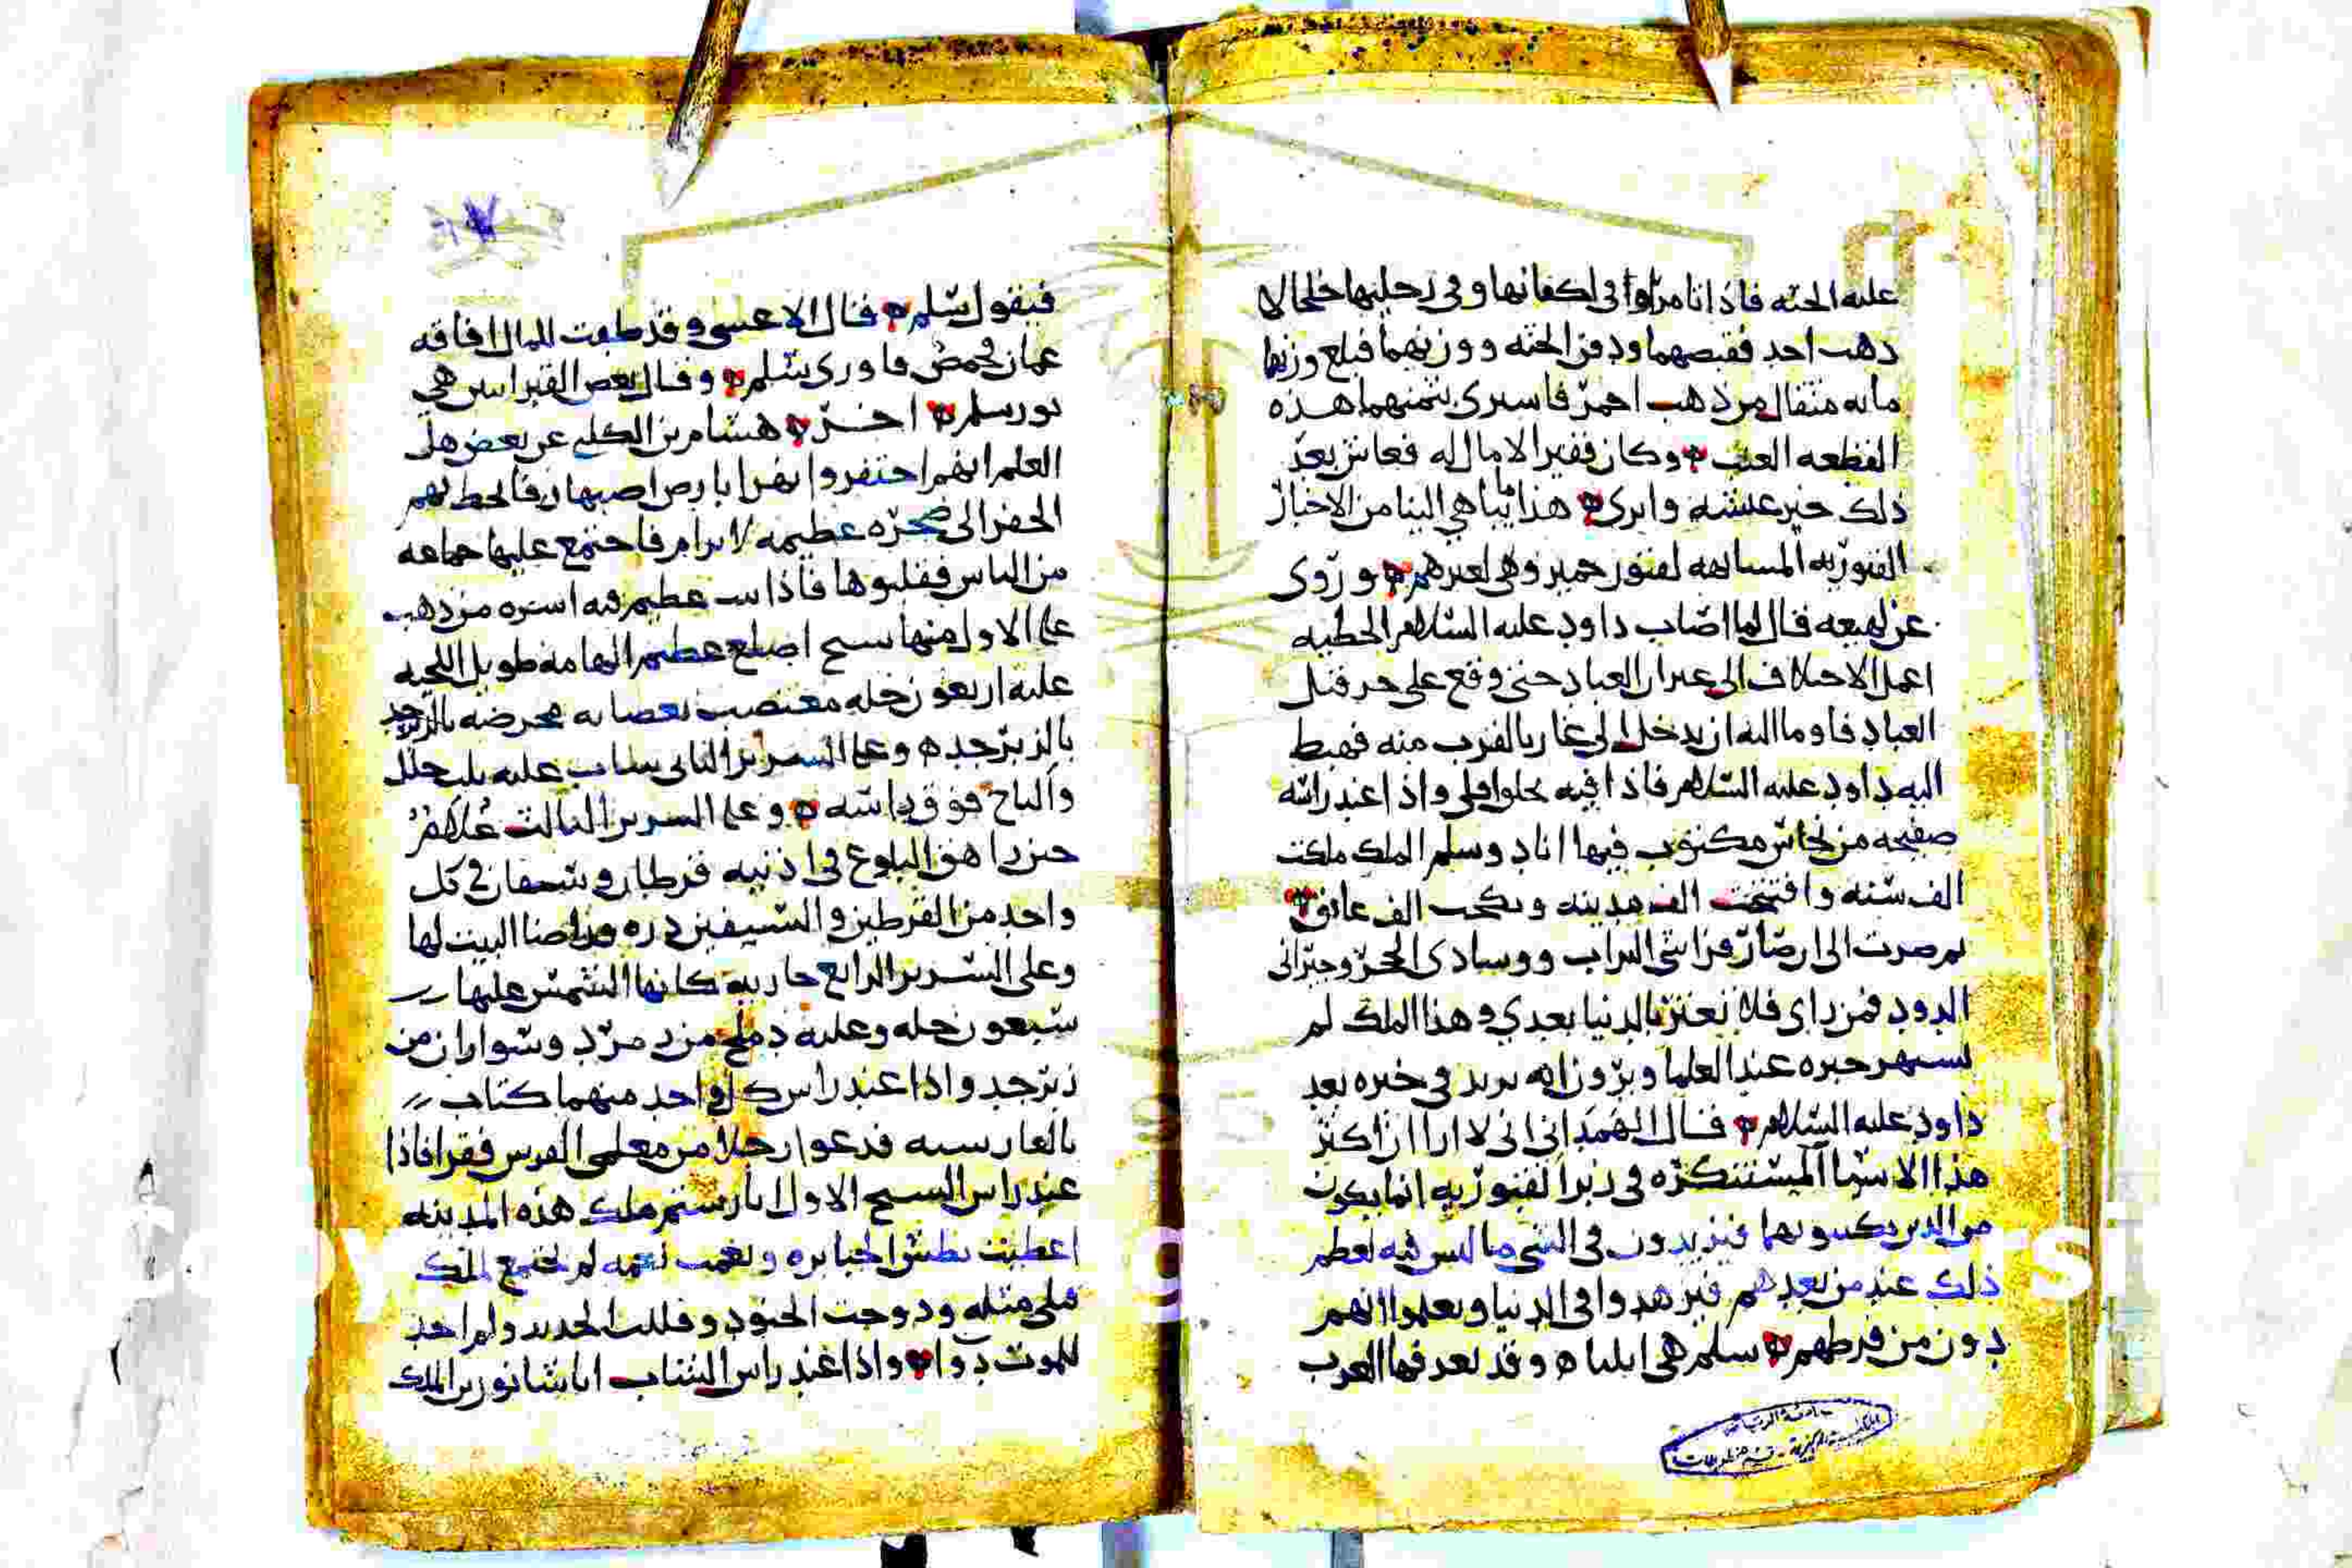 عليه الجثه فاذا نا مراوا في اكفانها وفي رجليها خلخالا
ذهب احمر فقبضهما ودفن الجثه ووزنهما فبلغ وزنها
مايه مثقال من ذهب احمر فاشترى بثمنهما هذه
القطعه العنب وكان فقيرا لا مال له فعاش بعد
ذلك خير عيشه واثرى هذا ما تناهى الينا من الاخبار
القبوريه المشابهه لقبور حمير وهي لغيرهم وروى
عن لهيعه قال لما اصاب داود عليه السلام الخطيه
اعمل الاختلاف الى غيران العباد حتى وقع على حرقيل
العباد فاوما اليه ان يدخل الى غار بالقرب منه فهبط
اليه داود عليه السلام فاذا فيه واذا عند راسه
صفيحه من نحاس مكتوب فيها انا دوسلم الملك ملكت
الف سنه وافتتحت الف مدينه ونكحت الف عاتق
ثم صرت الى ان صار فراشي التراب ووسادي الحجر وجيراني
الدود فمن راى فلا يغتر بالدنيا بعدي وهذا الملك لم
يشتهر خبره عند العلما ويرون انه يريد في خبره بعد
داود عليه السلام قال الهمداني اني لا ارا ان اكثر
هذا الاسما المستنكره في زبر القبوريه انما يكون
من الذين يكتبونها فيزيدون في الشي ما ليس فيه لعظم
ذلك عند من بعدهم فيزهدوا في الدنيا ويعلموا انهم
دون من فرطهم سلم هي ايليا وقد تعرفها العرب
فيقول شلم قال الاعشى وقد طفت للمال افاقه
عمان فحمص فاورى شلم وقال بعض القبراس هي
نورسلم اخبر هشام بن الكلبي عن بعض هل
العلم انهم احتفروا نهرا بارض اصبهان فافحط بهم
الحفر الى صخره عظيمه لا ترام فاجتمع عليها جماعه
من الناس فقلبوها فاذا بيت عظيم فيه اسره من ذهب
على الاول منها شيخ اصلع عظيم الهامه طويل اللحيه
عليه اربعون حله معتصب بعصابه بالزبرجد
بالزبرجد وعلى السرير الثاني شاب عليه حلل
والتاج فوق راسه وعلى السرير الثالث غلام
حين راهق البلوغ في اذنيه قرطان وشنفان في كل
واحد من القرطين والشنيفين دره اضا البيت لها
وعلى السرير الرابع جاريه كانها الشمس عليها
سبعون حله وعليه دملج من زمرد وسواران من
زبرجد واذا عند راس كل واحد منهما كتاب
بالفارسيه فدعوا رجلا من معلمي الفرس فقرا فاذا
عند راس الشيخ الاول انا رستم ملك هذه المدينه
اعطيت بطش الجبابره ونعمت نعمه لم تجتمع لملك
قبلي مثله ودوخت الجنود وفللت الحديد ولم اجد
للموت دوا واذا عند راس الشاب انا شانور بن الملك